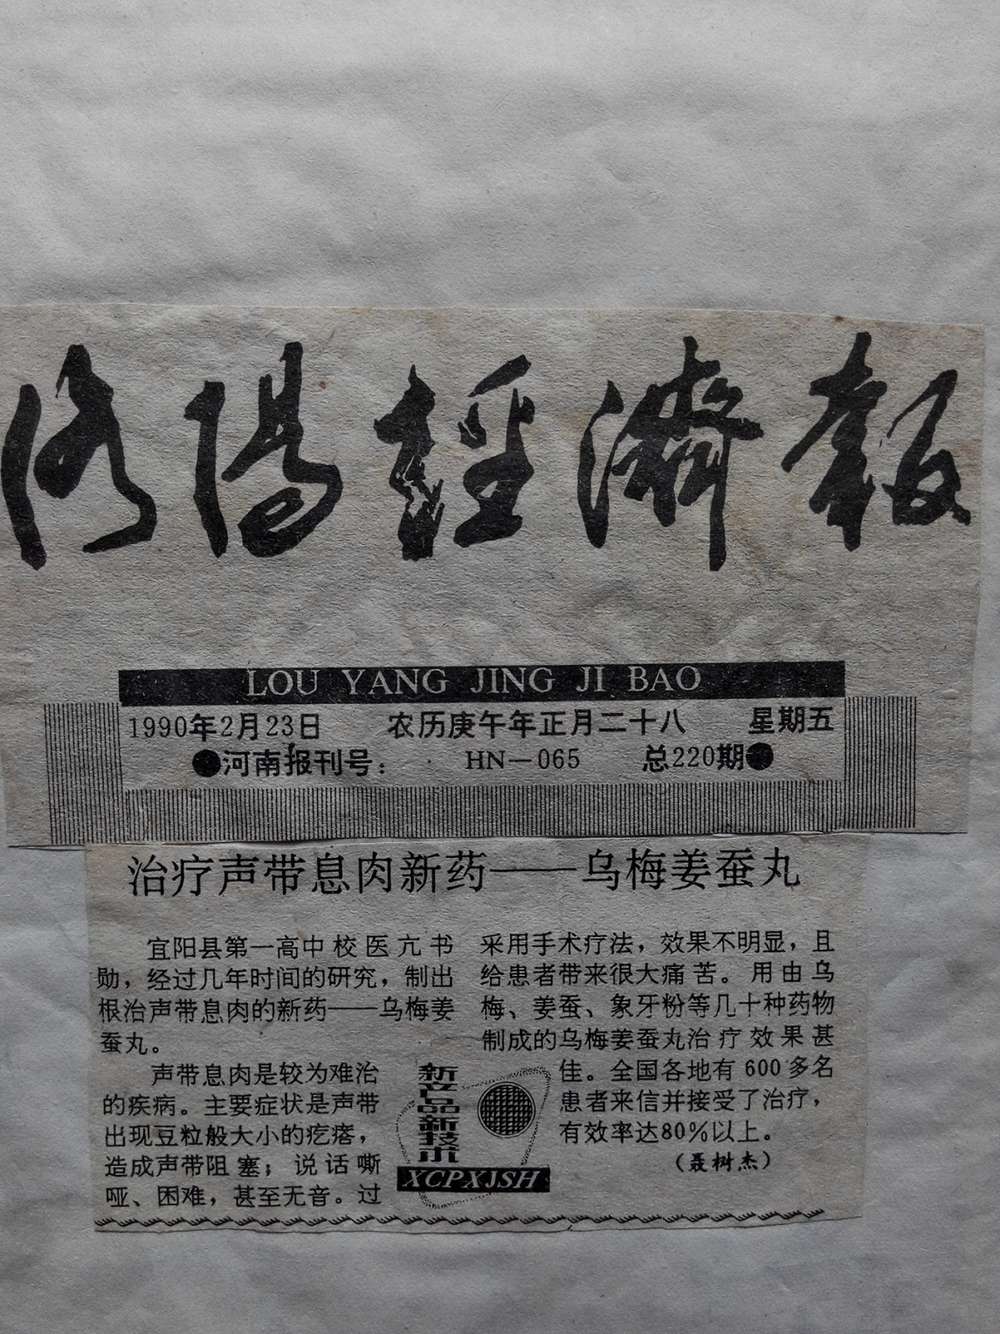 洛陽經濟報
LOU YANG JING JI BAO
1990年2月23日 农历庚午年正月二十八 星期五
●河南报刊号： HN—065 总220期●
治疗声带息肉新药——乌梅姜蚕丸
宜阳县第一高中校医亢书
勋，经过几年时间的研究，制出
根治声带息肉的新药——乌梅姜
蚕丸。
声带息肉是较为难治
的疾病。主要症状是声带
出现豆粒般大小的疙瘩，
造成声带阻塞；说话嘶
哑、困难，甚至无音。过
采用手术疗法，效果不明显，且
给患者带来很大痛苦。用由乌
梅、姜蚕、象牙粉等几十种药物
制成的乌梅姜蚕丸治疗效果甚
佳。全国各地有600多名
患者来信并接受了治疗，
有效率达80%以上。
（聂树杰）
新产品新技术
XCPXJSH